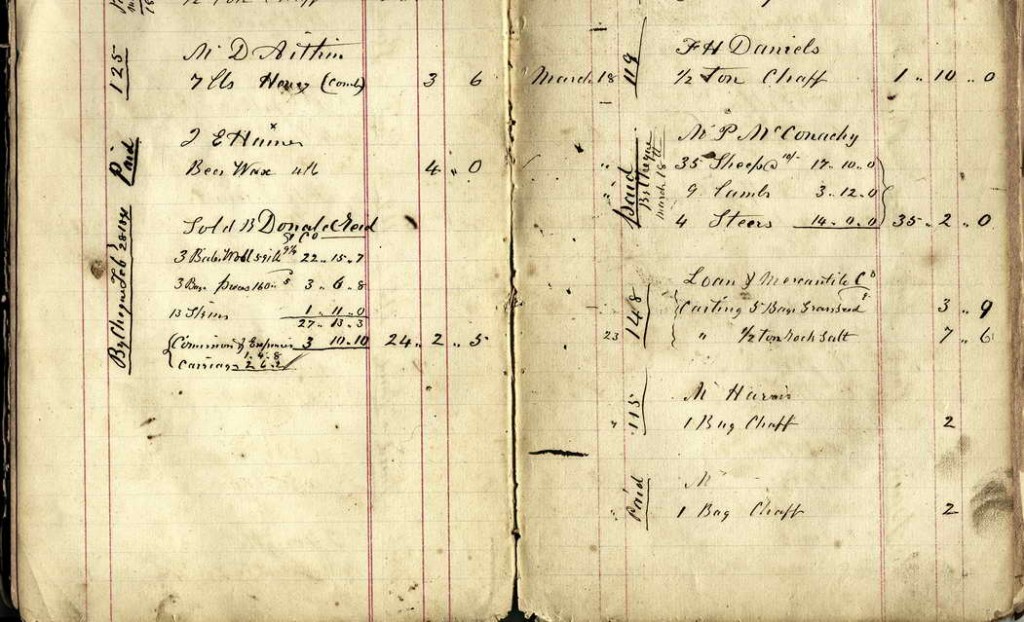 ½ Ton Chaff
125
Mr D Aitkin
7 lbs Honey (Comb) 3 6
Paid
J E Haines
Bees Wax 4 lb 4 " 0
By Cheque Feb 28
Sold to Donald Reid
& Co
3 Bales Wool 22 " 15 " 7
3 Bags 3 " 6 " 8
13 Skins 1 " 11 " 0
27 " 13 " 3
Commission & Expenses 3 10 " 10 24 " 2 " 5
1 " 4 " 8
Carriage 2 " 6 " 2
119
F H Daniels
March 18 ½ Ton Chaff 1 " 10 " 0
Paid
By Cheque
March 18th
Mr P McConachy
" 35 Sheep @ 10/- 17 " 10 " 0
" 9 Lambs 3 " 12 " 0
4 Steers 14 " 0 " 0 35 " 2 " 0
148
Loan & Mercantile Co
Carting 5 Bags 3 " 9
23 " ½ ton rock salt 7 " 6
115
Mr Harris
" 1 Bag Chaff 2
Paid
Mr
" 1 Bag Chaff 2